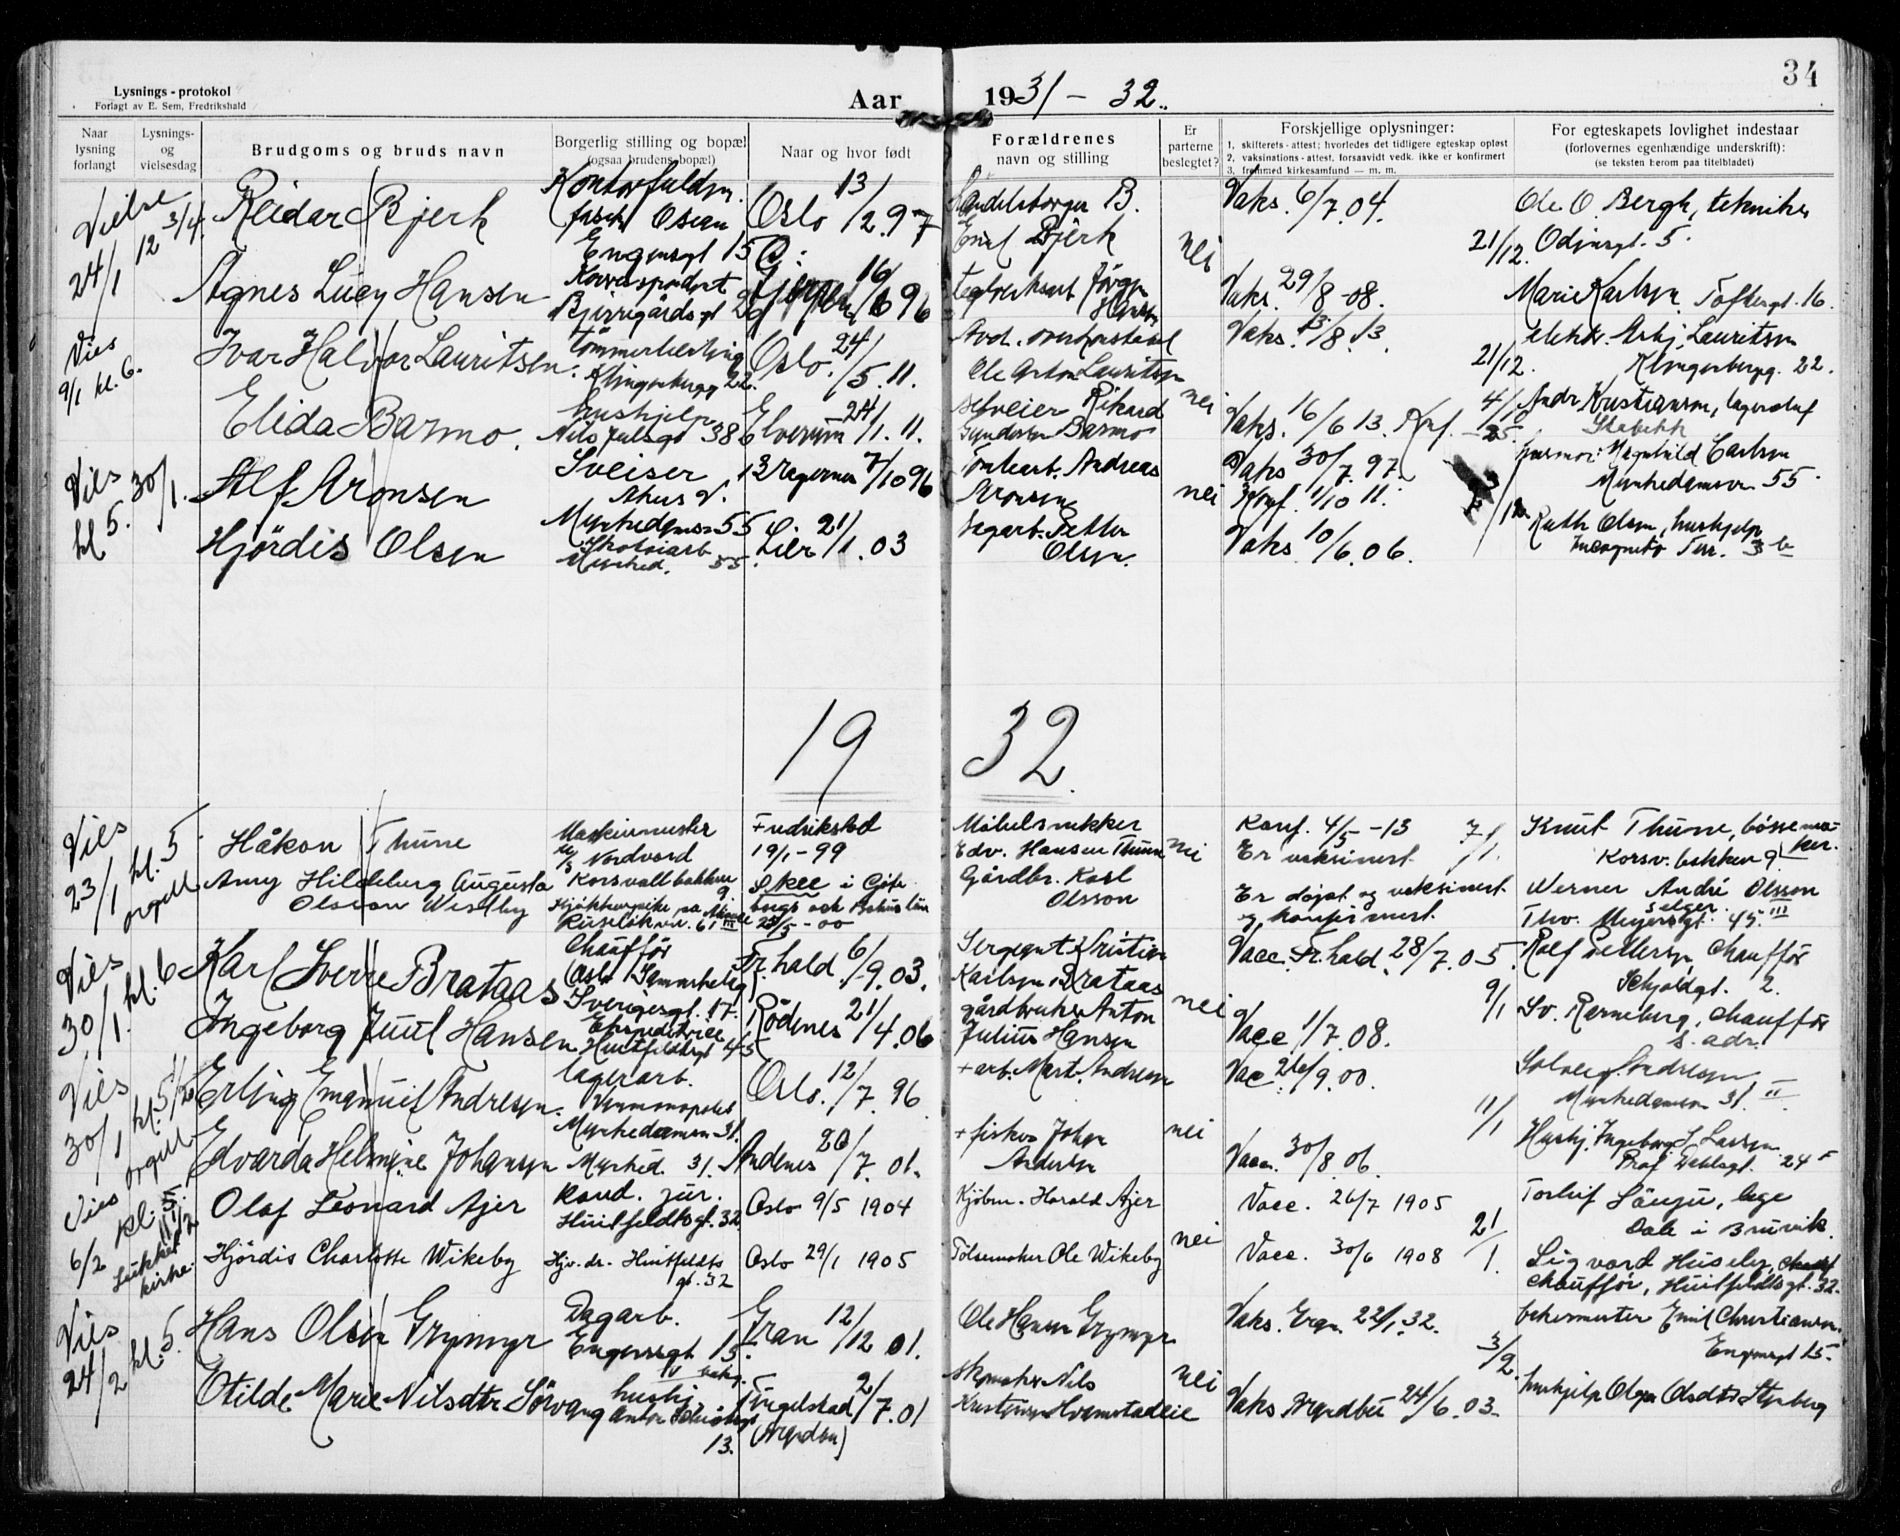 34
Lysnings-protokol
Forlagt av E. Sem, Fredrikshald
Aar 1931 – 32.
Naar lysning forlangt
Lysnings- og vielsesdag
Brudgoms og bruds navn
Borgerlig stilling og bopæl
(ogsaa brudens bopæl)
Naar og hvor født
Forældrenes
navn og stilling
Er parterne beslegtet?
Forskjellige oplysninger:
1, skifterets-attest; hvorledes det tidligere egteskap opløst
2, vaksinations-attest, forsaavidt vedk. ikke er konfirmert
3, fremmed kirkesamfund — m. m.
For egteskapets lovlighet indestaar
(forlovernes egenhændige underskrift):
(se teksten herom paa titelbladet)
Vielse 24/1 12 3/4.
Reidar Bjerk
Oslo 13/2.97
B.
Bjerk
nei
Vaks. 6/7.04.
21/12.
Ole O. Bergh, tekniker
Odinsgt. 5.
Agnes Lucy Hansen
Korrespondent
16/6 96
Jørgen
Hansen
Vaks. 29/8-08.
Marie Karlsen, Toftesgt. 16.
Vies 9/1 kl. 6.
Ivar Halvor Lauritsen.
22.
Oslo. 24/5. 11.
Ole Anton Lauritsen
nei
Vaks. 13/8.13.
21/12.
Arbj. Lauritsen
Klingenbergg. 22.
Elida Barmo.
hushjelp
Nils Juelsgt 38
Elverum 24/1. 11.
selveier Rikard
Barmo
Vaks. 16/6 13. Konf.
4/1
Andr Kristiansen, lagersjef
Stabekk
Vies 30/1. kl 5.
Alf Aronsen
Sveiser
Akers V.
Munkedamsv 55
Bragernes 7/10 96
Andreas
Aronsen
nei
Vaks 30/7. 97.
Konf. 1/10 11.
Magnhild Carlsen
Munkedamsvn 55.
Hjördis Olsen
Munked. 55.
Lier 21/1. 03
Petter
Olsen.
Vaks 10/6.06.
Ruth Olsen, hushjelp
Incognito Terr. 3 b
19 32.
Vies 23/1 kl. 5 orgell
Håkon Thune
Maskinmester
M/S Nordvard
Korsvollbakken
9
Fredrikstad
19/1-99
Möbelsnekker
Edv. Hansen Thune
nei
Konf. 4/5 -13
Er vaksinert
7/1.
Knut Thune, bössemaker.
Korsv. bakken 9
Amy Hildeburg Augusta
Olsson Westby
Skee i Göteborgs och Bohus län
25/5-00
Gårdbr. Karl
Olsson
Er döpt og vaksinert
og konfirmert.
Werner André Olsson
selger.
Thv. Meyersgt. 45. III
Vies 30/1. kl. 6
Karl Sverre Brataas
Chauffør
Sverigesgt. 17.
Fr.hald. 6/9. 03.
Sergeant Kristian
Karlsen Brataas
nei
Vacc. Fr.hald. 28/7. 05.
9/1
Rolf Pettersen Chauffør
Schjoldgt. 2.
Ingeborg Juul Hansen
Ekspeditrice
Huitfeldtsgt 45
Rödenes 21/4. 06
gårdbruker Anton
Julius Hansen
Vacc 1/7. 08.
Sv. Ramberg, chauffør
s. adr.
Vies 30/1 kl. 5 1/2 orgell
Erling Emanuel Andresen.
lagerarb.
Vinmonopolet
Munkedamsvn 31.
Oslo. 12/7. 96
+ arb. Mart. Andresen
nei
Vac. 26/9.00.
11/1
Solveig Andresen
Munkedamsvn 31. II
Edvarda Helmine Johansen
Munked. 31.
Andenes 20/7. 01.
+ fisker Johan
Andersen
Vacc. 30/8. 06.
Hushj. Ingeborg J. Larsen
Prof. Dahlsgt. 24
Vies 6/2 kl. 5. Lukket kirke.
Olaf Leonard Ajer
kand. jur.
Huitfeldtsgt. 32
Oslo 9/5 1904
Kjöbm. Harald Ajer
nei
Vacc. 26/7 1905
21/1.
Dale i Bruvik.
Hjördis Charlotte Wikeby
Hjv. dr. Huitfeldts
gt. 32
Oslo 29/1 1905
Pölsemaker Ole Wikeby
Vacc. 30/6 1908
Sigvard Huseby,
chauffør, Huitfeldtsgt. 32.
Vies 24/2 kl. 5.
Hans Olsen Grymyr
Dagarb.
Engensgt 15.
Gran 12/12 01.
Ole Hansen Grymyr
nei
Vaks. Gran 22/1.32.
3/2.
bakermester Emil Christiansen.
Engensgt 15.
Otilde Marie Nilsdtr Sörvang
hushj.
13.
Tingelstad 2/7.01
(Brandbu)
skomaker Nils
Vaks Brandbu 24/6. 03.
hushjelp Olga Olsdtr Stenberg